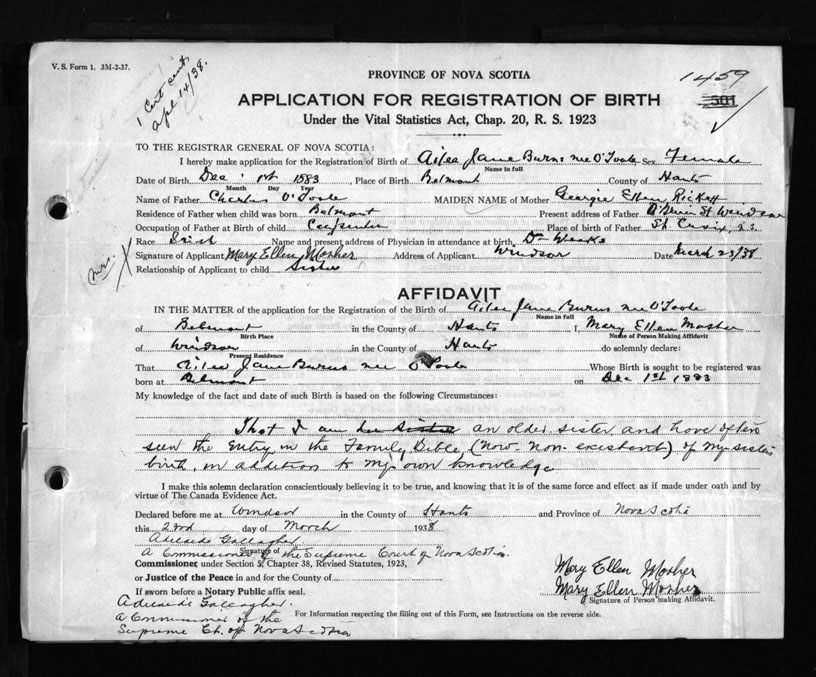 V. S. Form 1. 3M-2-37.
1 Cert
Apl 14/38.
1459
501
PROVINCE OF NOVA SCOTIA
APPLICATION FOR REGISTRATION OF BIRTH
Under the Vital Statistics Act, Chap. 20, R. S. 1923
TO THE REGISTRAR GENERAL OF NOVA SCOTIA:
I hereby make application for the Registration of Birth of Jane Burns nee O'Toole Sex Female
Name in full
Date of Birth Dec 1st 1883, Place of Birth Belmont County of Hants
Month Day Year
Name of Father Charles O'Toole MAIDEN NAME of Mother Georgie Ellen
Residence of Father when child was born Belmont Present address of Father St Windsor
Occupation of Father at Birth of child Carpenter Place of birth of Father St. Croix, N.S.
Race Irish Name and present address of Physician in attendance at birth Dr Weeks
Mrs. X
Signature of Applicant Mary Ellen Mosher Address of Applicant Windsor Date March 23/38
Relationship of Applicant to child Sister
AFFIDAVIT
IN THE MATTER of the application for the Registration of the Birth of Jane Burns nee O'Toole
Name in full
of Belmont in the County of Hants I, Mary Ellen Mosher
Birth Place Name of Person Making Affidavit
of Windsor in the County of Hants do solemnly declare:
Present Residence
That Jane Burns nee O'Toole Whose Birth is sought to be registered was
born at Belmont on Dec 1st 1883
My knowledge of the fact and date of such Birth is based on the following Circumstances:
That I am her sister an older sister and have often
seen the Entry in the Family Bible (now non existent) of my sister's
birth, in addition to my own knowledge
I make this solemn declaration conscientiously believing it to be true, and knowing that it is of the same force and effect as if made under oath and by
virtue of The Canada Evidence Act.
Declared before me at Windsor in the County of Hants and Province of Nova Scotia
this 23rd day of March 1938
Adelaide Gallagher
A Commissioner of the Supreme Court of Nova Scotia.
Signature of
Commissioner, under Section 5, Chapter 38, Revised Statutes, 1923,
or Justice of the Peace in and for the County of
Mary Ellen Mosher
If sworn before a Notary Public affix seal.
Mary Ellen Mosher
Signature of Person making Affidavit.
Adelaide Gallagher.
For Information respecting the filling out of this Form, see Instructions on the reverse side.
a Commissioner of the
Supreme Ct. of Nova Scotia